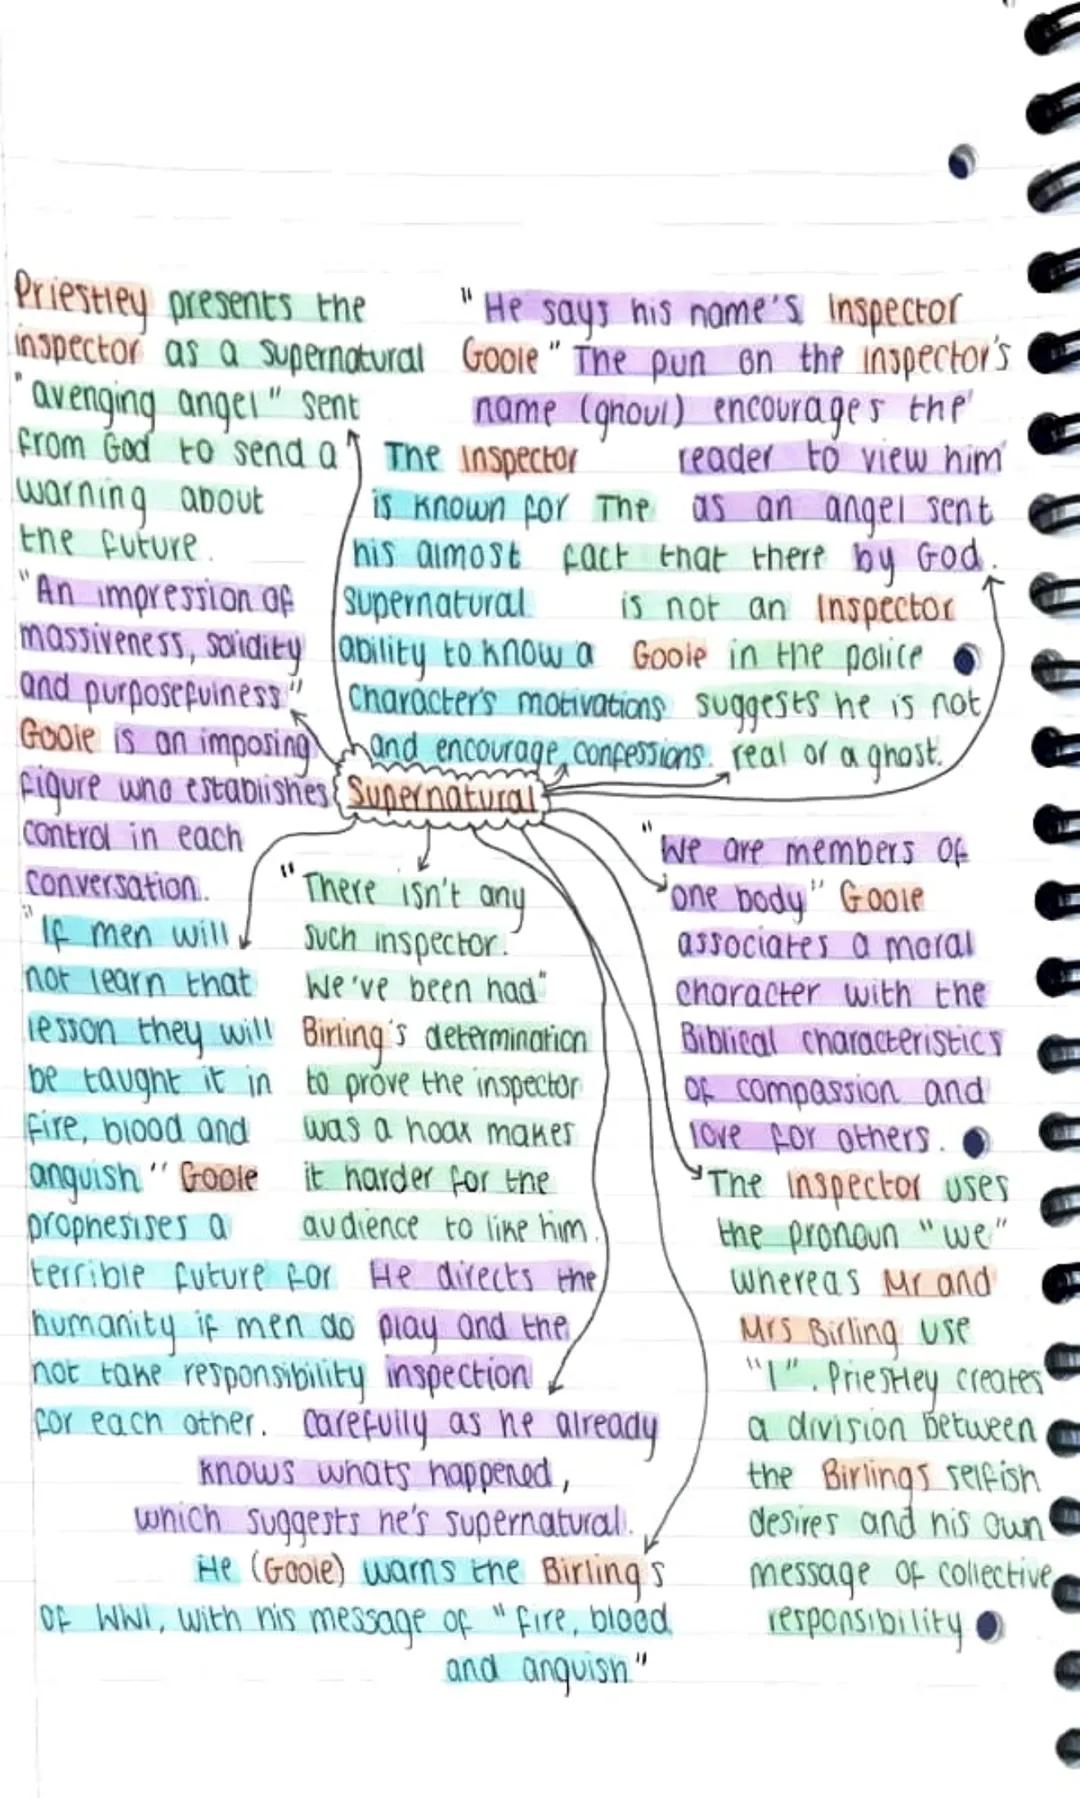 Priestley presents the
inspector as a supernatural
"avenging angel" sent
from God to send a
warning about
the future.
"He says his name's Inspector
Goole" The pun on the inspector's
name (ghoul) encourages the
reader to view him
as an angel sent
by God.
The Inspector
is known for
his almost
supernatural
ability to know a
character's motivations
and encourage confessions.
The
fact that there
is not an Inspector
Goole in the police
suggests he is not
real or a ghost.
"An impression of
massiveness, solidity
and purposefulness"
Goole is an imposing
figure who establishes
control in each
conversation.
Supernatural
"If men will
not learn that
lesson they will
be taught it in
fire, blood and
anguish" Goole
prophesises a
terrible future for
humanity if men do
not take responsibility
for each other.
"There isn't any
such inspector.
We've been had"
Birling's determination
to prove the inspector
was a hoax makes
it harder for the
audience to like him.
He directs the
play and the
inspection
carefully as he already
knows whats happened,
which suggests he's supernatural.
He (Goole) warns the Birling's
of WW1, with his message of "fire, blood
and anguish"
"We are members of
one body" Goole
associates a moral
character with the
Biblical characteristics
of compassion and
love for others.
The Inspector uses
the pronoun "we"
whereas Mr and
Mrs Birling use
"I". Priestley creates
a division between
the Birlings selfish
desires and his own
message of collective
responsibility